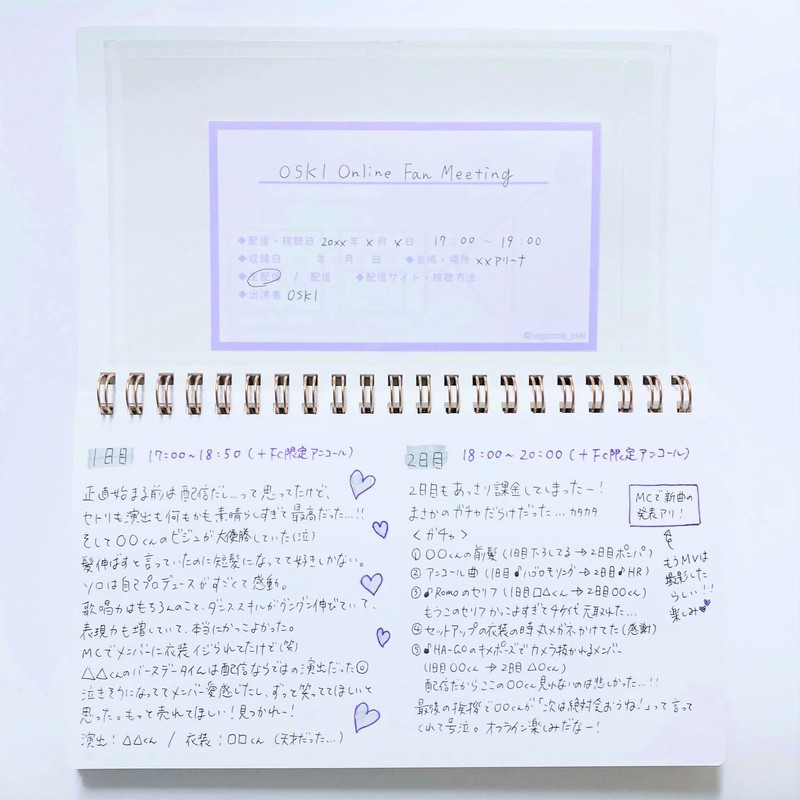 OSKI Online Fan Meeting
◆配信・視聴日 20xx年 x月 x日 17:00 ~ 19:00
◆収録日 年 月 日 ◆会場・場所 xxアリーナ
◆生配信 / 配信 ◆配信サイト・視聴方法
◆出演者 OSKI
1日目 17:00~18:50 (+FC限定アンコール)
正直始まる前は配信だし...って思ってたけど、
セトリも演出も何もかも素晴らしすぎて最高だった...!!
そして〇〇くんのビジュが大優勝していた(泣)
髪伸ばすと言っていたのに短髪になってて好きしかない。
ソロは自己プロデュースがすごくて感動。
歌唱力はもちろんのこと、ダンススキルがグングン伸びていて、
表現力も増していて、本当にかっこよかった。
MCでメンバーに衣装イジられてたけど(笑)
△△くんのバースデータイムは配信ならではの演出だった☺
泣きそうになっててメンバー愛感じたし、ずっと笑っててほしいと
思った。もっと売れてほしい!見つかれー!
演出:△△くん / 衣装:□□くん (天才だった...)
2日目 18:00~20:00 (+FC限定アンコール)
2日目もあっさり課金してしまったー!
まさかのガチャだらけだった...カタカタ
<ガチャ>
① 〇〇くんの前髪 (1日目下ろしてる→2日目ポンパ)
② アンコール曲 (1日目♪ハゴロモリング→2日目♪HR)
③ ♪Romoのセリフ (1日目□△くん→2日目〇〇くん)
もうこのセリフかっこよすぎてチケ代元取れた...
④ セットアップの衣装の時丸メガネかけてた(感動)
⑤ ♪HA-GOのキメポーズでカメラ抜かれるメンバー
(1日目〇〇くん → 2日目△〇くん)
配信だからここの〇〇くん見れないのは悲しかった...!!
最後の挨拶で〇〇くんが「次は絶対会おうね!」って言って
くれて号泣。オフライン楽しみだなー!
MCで新曲の
発表アリ!
もうMVは
撮影した
らしい!!
楽しみ